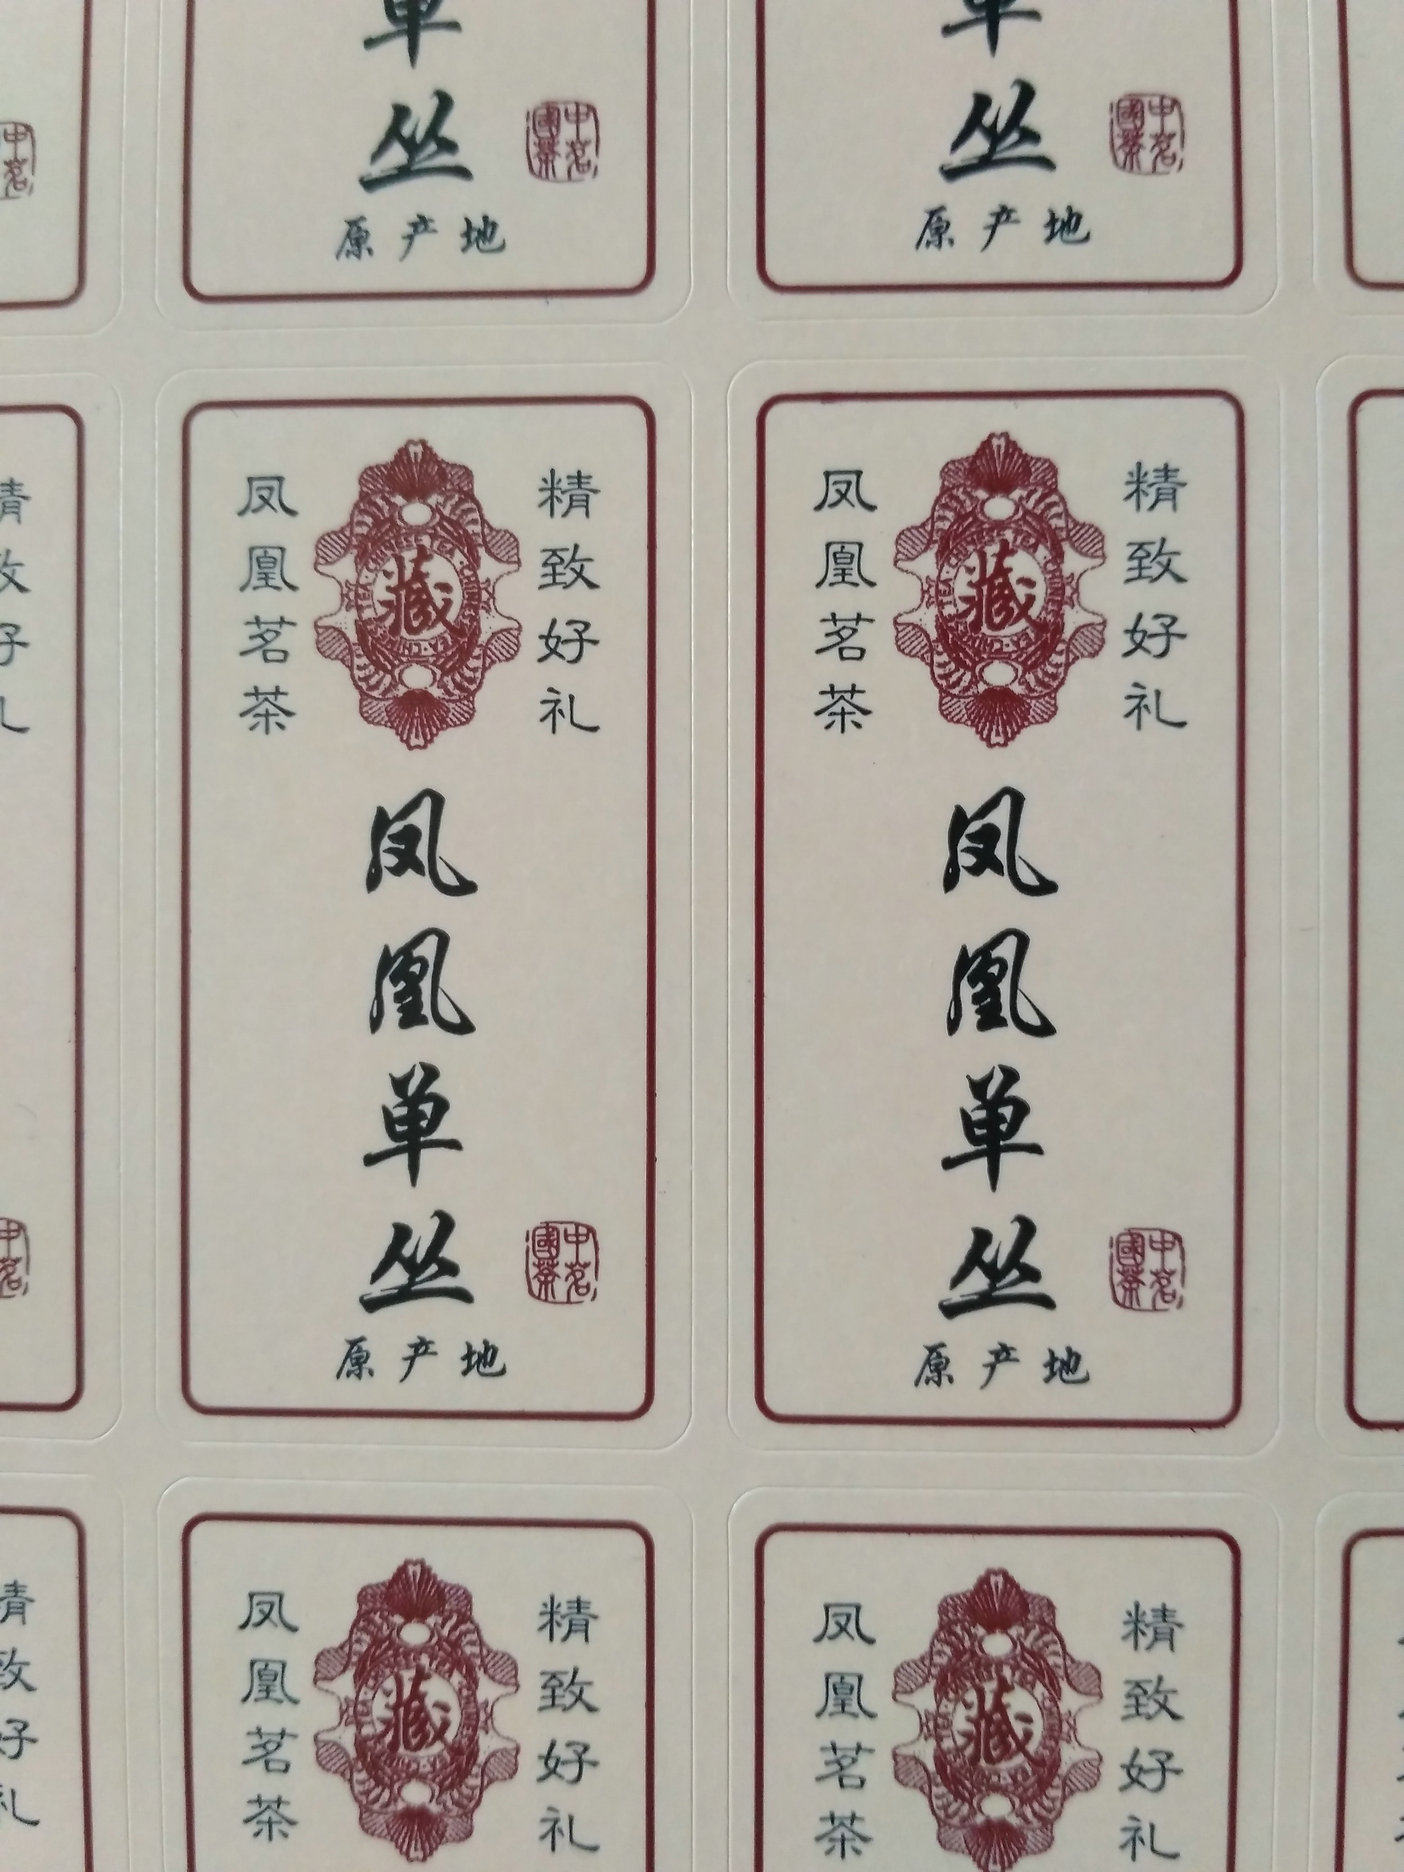 单丛
中国茗茶
原产地
单丛
中国茗茶
原产地
精致好礼
藏
凤凰茗茶
凤凰单丛
中國茗茶
原产地
精致好礼
藏
凤凰茗茶
凤凰单丛
中國茗茶
原产地
精致好礼
藏
凤凰茗茶
精致好礼
藏
凤凰茗茶